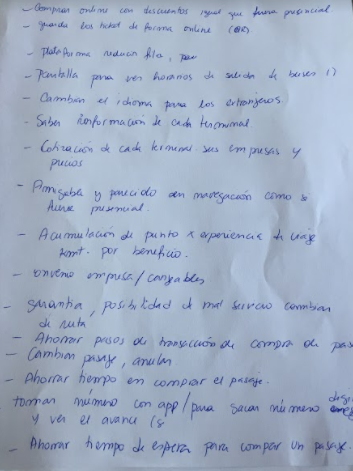 - Comprar online con descuentos igual que fuera presencial
- guarda los ticket de forma online
- plataforma reducir fila,
- Pantalla para ver horarios de salida de buses
- Cambiar el idioma para los extranjeros.
- Saber información de cada terminal
- Cotización de cada terminal sus empresas y
precios
- Amigable y parecido en navegación como si
fuere presencial.
- Acumulación de punto x experiencia de viaje
kmt. por beneficio.
- convenio empresa/canjeables
- garantia, posibilidad de mal servicio cambian
de ruta
- Ahorrar pasos de transacción de compra de
- Cambian pasaje, anular
- Ahorrar tiempo en comprar el pasaje.
tomar número con app/para sacar número
y ver el avance
- Ahorrar tiempo de espera para comprar un pasaje.